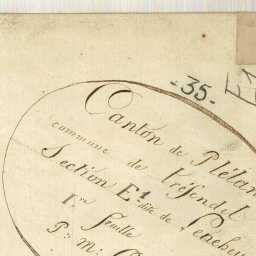 -35-
Canton de Plélan
commune de Tréfendel
Section E1
dite de
1re feuille
P. M.